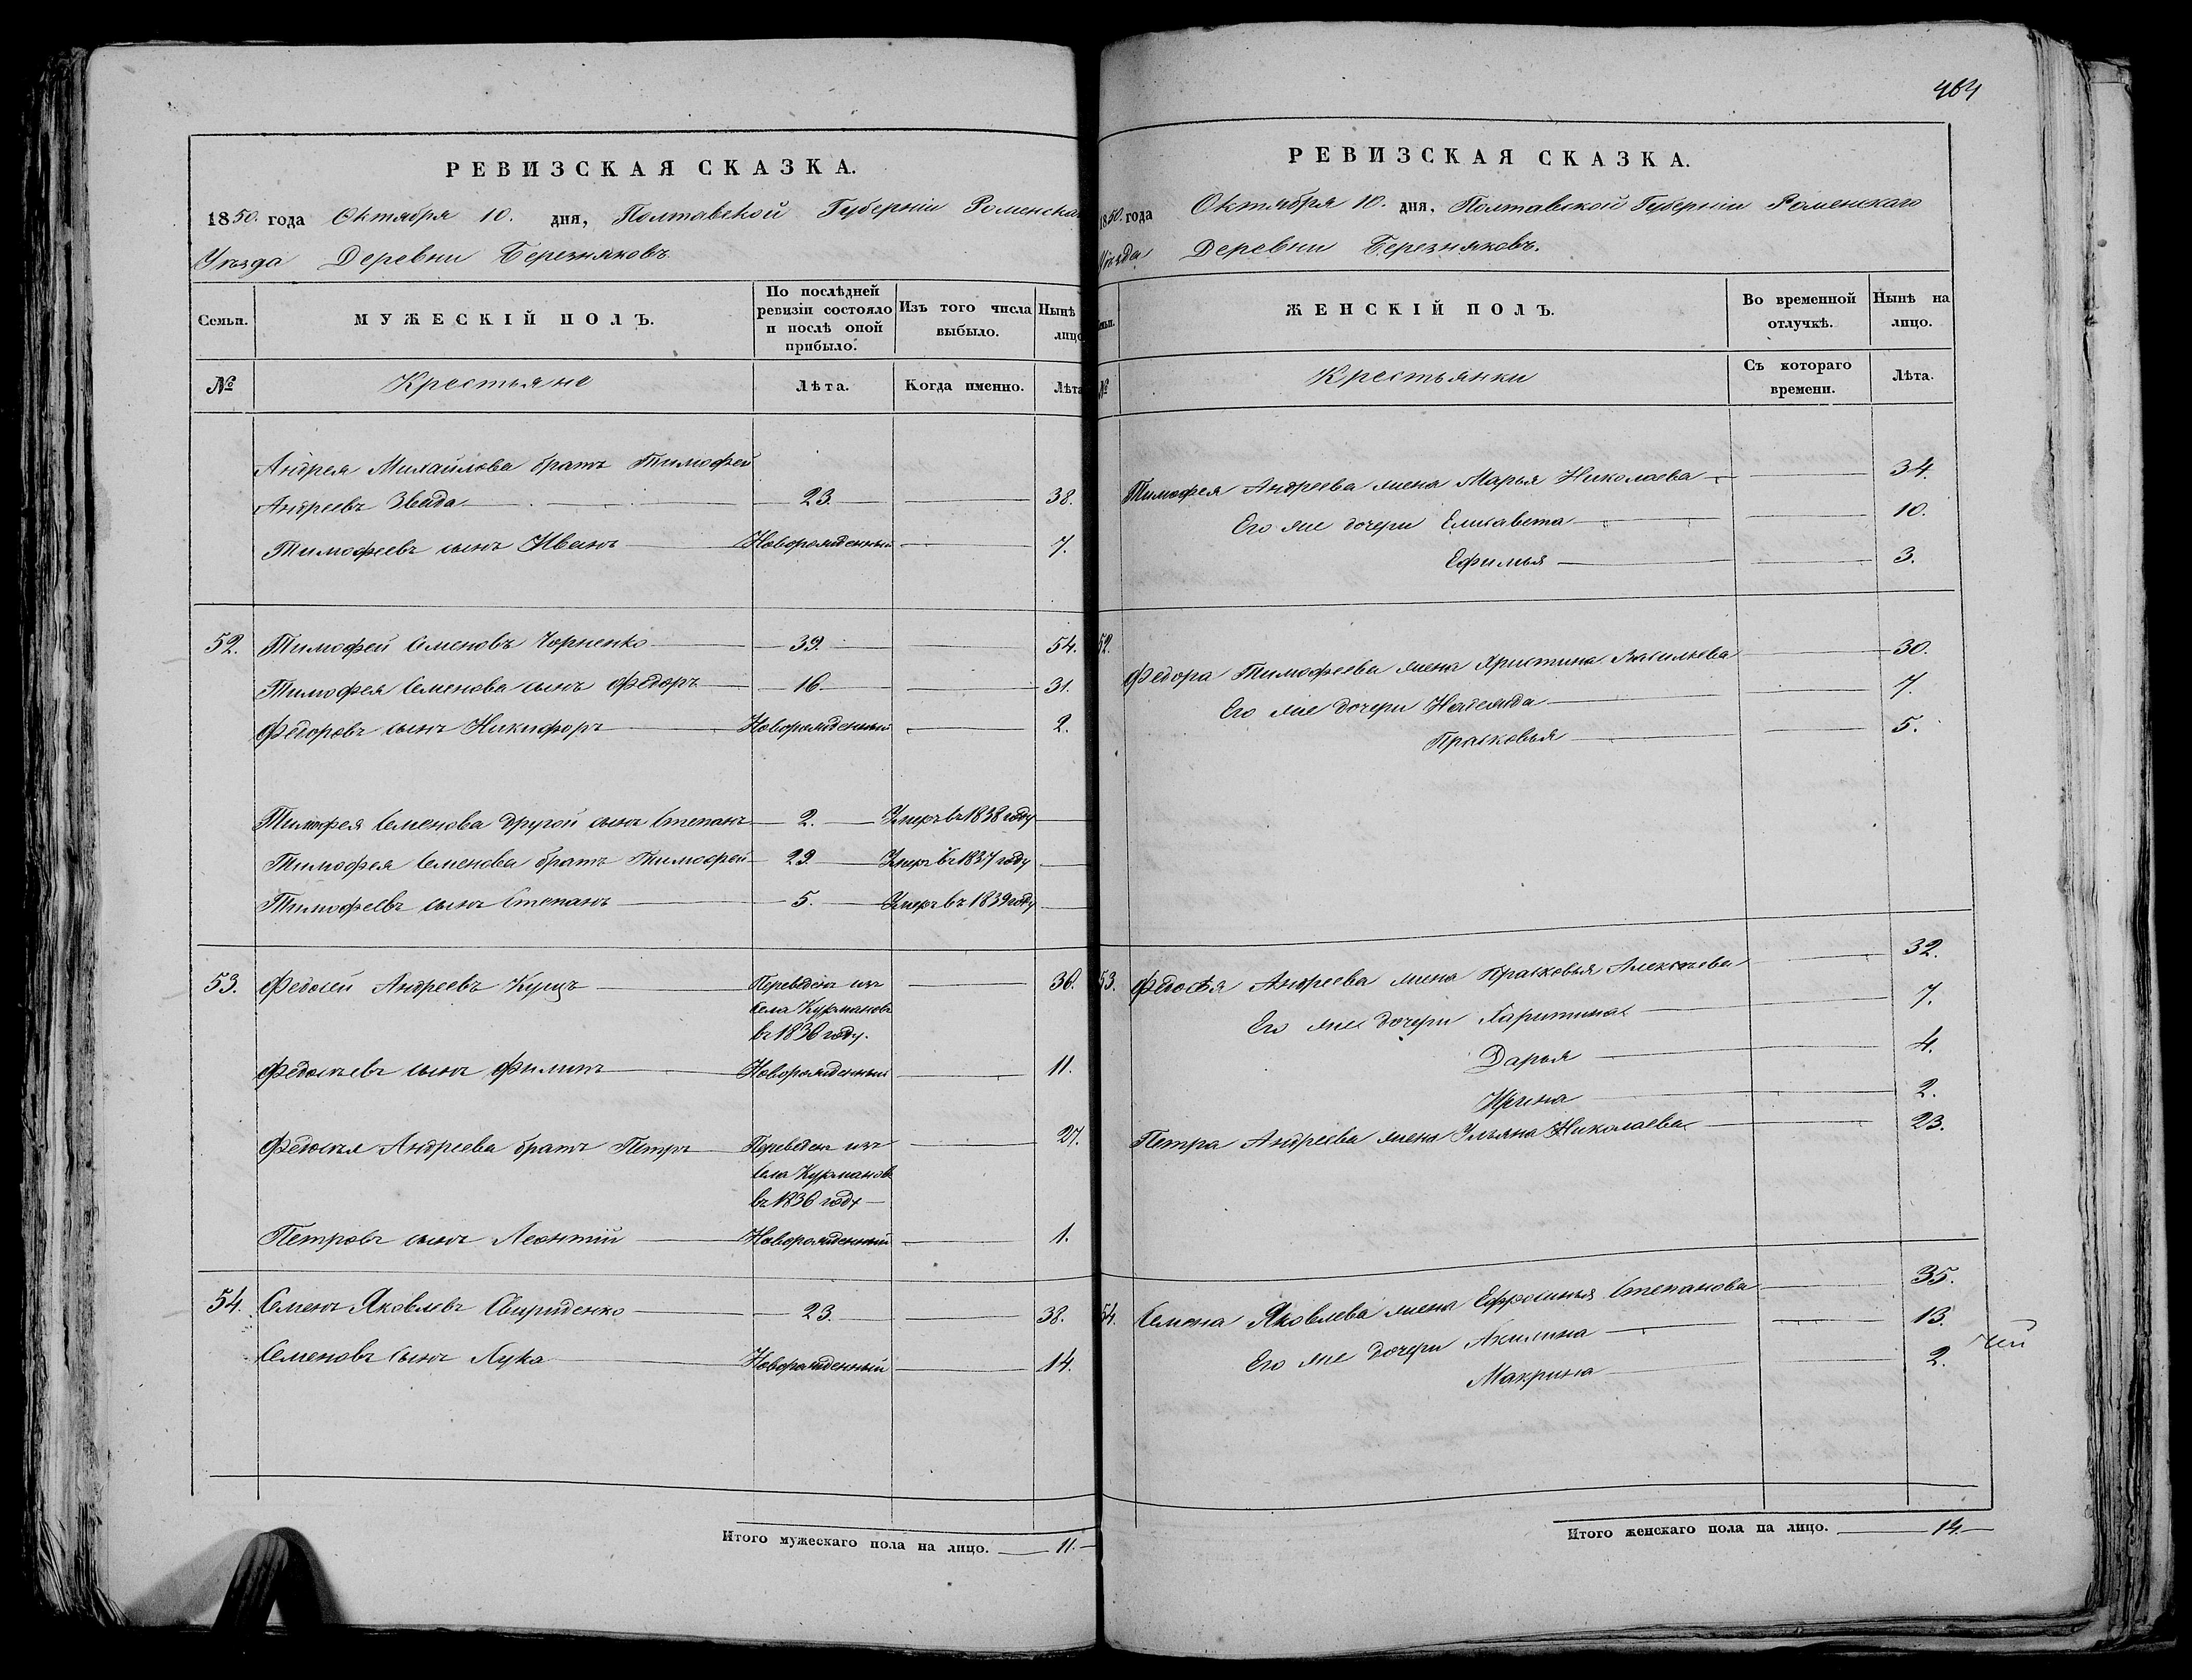 РЕВИЗСКАЯ СКАЗКА.
1850. года Октября 10. дня, Полтавской Губерніи Роменска
Уѣзда Деревни Березняковъ
Семьи.
МУЖЕСКІЙ ПОЛЪ.
По послѣдней ревизіи состояло и послѣ оной прибыло.
Изъ того числа выбыло.
Нынѣ лицо
№
Крестьяне
Лѣта.
Когда именно.
Лѣта
Андрея Михайлова братъ Тимофей
Андреевъ Звѣда 23. 38.
Тимофеевъ сынъ Иванъ Новорожденный 7.
52. Тимофей Семеновъ Чорненко 39. 54.
Тимофея Семенова сынъ Федоръ 16. 31.
Федоровъ сынъ Никифоръ Новорожденный 2.
Тимофея Семенова другой сынъ Степанъ 2. Умеръ въ 1838 году
Тимофея Семенова братъ Тимофей 29. Умеръ въ 1837 году
Тимофеевъ сынъ Степанъ 5. Умеръ въ 1839 году
53. Федосей Андреевъ Куцъ Переведенъ изъ 36.
села Курмановъ
въ 1836 году.
Федосѣевъ сынъ Филипъ Новорожденный 11.
Федосѣя Андреева братъ Петръ Переведенъ изъ 27.
села Курмановъ
въ 1836 году
Петровъ сынъ Леонтій Новорожденный 1.
54. Семенъ Яковлевъ Свириденко 23. 38.
Семеновъ сынъ Лука Новорожденный 14.
Итого мужескаго пола на лицо. 11.
464
РЕВИЗСКАЯ СКАЗКА.
1850. года Октября 10. дня, Полтавской Губерніи Роменскаго
Уѣзда Деревни Березняковъ.
ЖЕНСКІЙ ПОЛЪ.
Во временной отлучкѣ.
Нынѣ на лицо.
№
Крестьянки
Съ котораго времени.
Лѣта.
Тимофея Андреева жена Марья Николаева 34.
Его же дочери Елисавета 10.
Ефимья 3.
52.
Федора Тимофеева жена Христина Васильева 30.
Его же дочери Надежда 7.
Прасковья 5.
53. Федосѣя Андреева жена Прасковья Алексѣева 32.
Его же дочери Харитина 7.
Дарья 4.
Ирина 2.
Петра Андреева жена Ульяна Николаева 23.
54. Семена Яковлева жена Ефросинья Степанова 35.
Его же дочери Акилина 13.
Макрина 2.
Итого женскаго пола на лицо. 14.